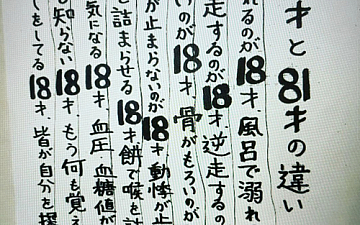 才と81才の違い
れるのが18才、風呂で溺れ
走するのが18才、逆走するの
いのが18才、骨がもろいのが
が止まらないのが18才、動悸が止
詰まらせる18才、餅で喉を詰
気になる18才、血圧、血糖値が
も知らない18才、もう何も覚え
しをしてる18才、皆が自分を探